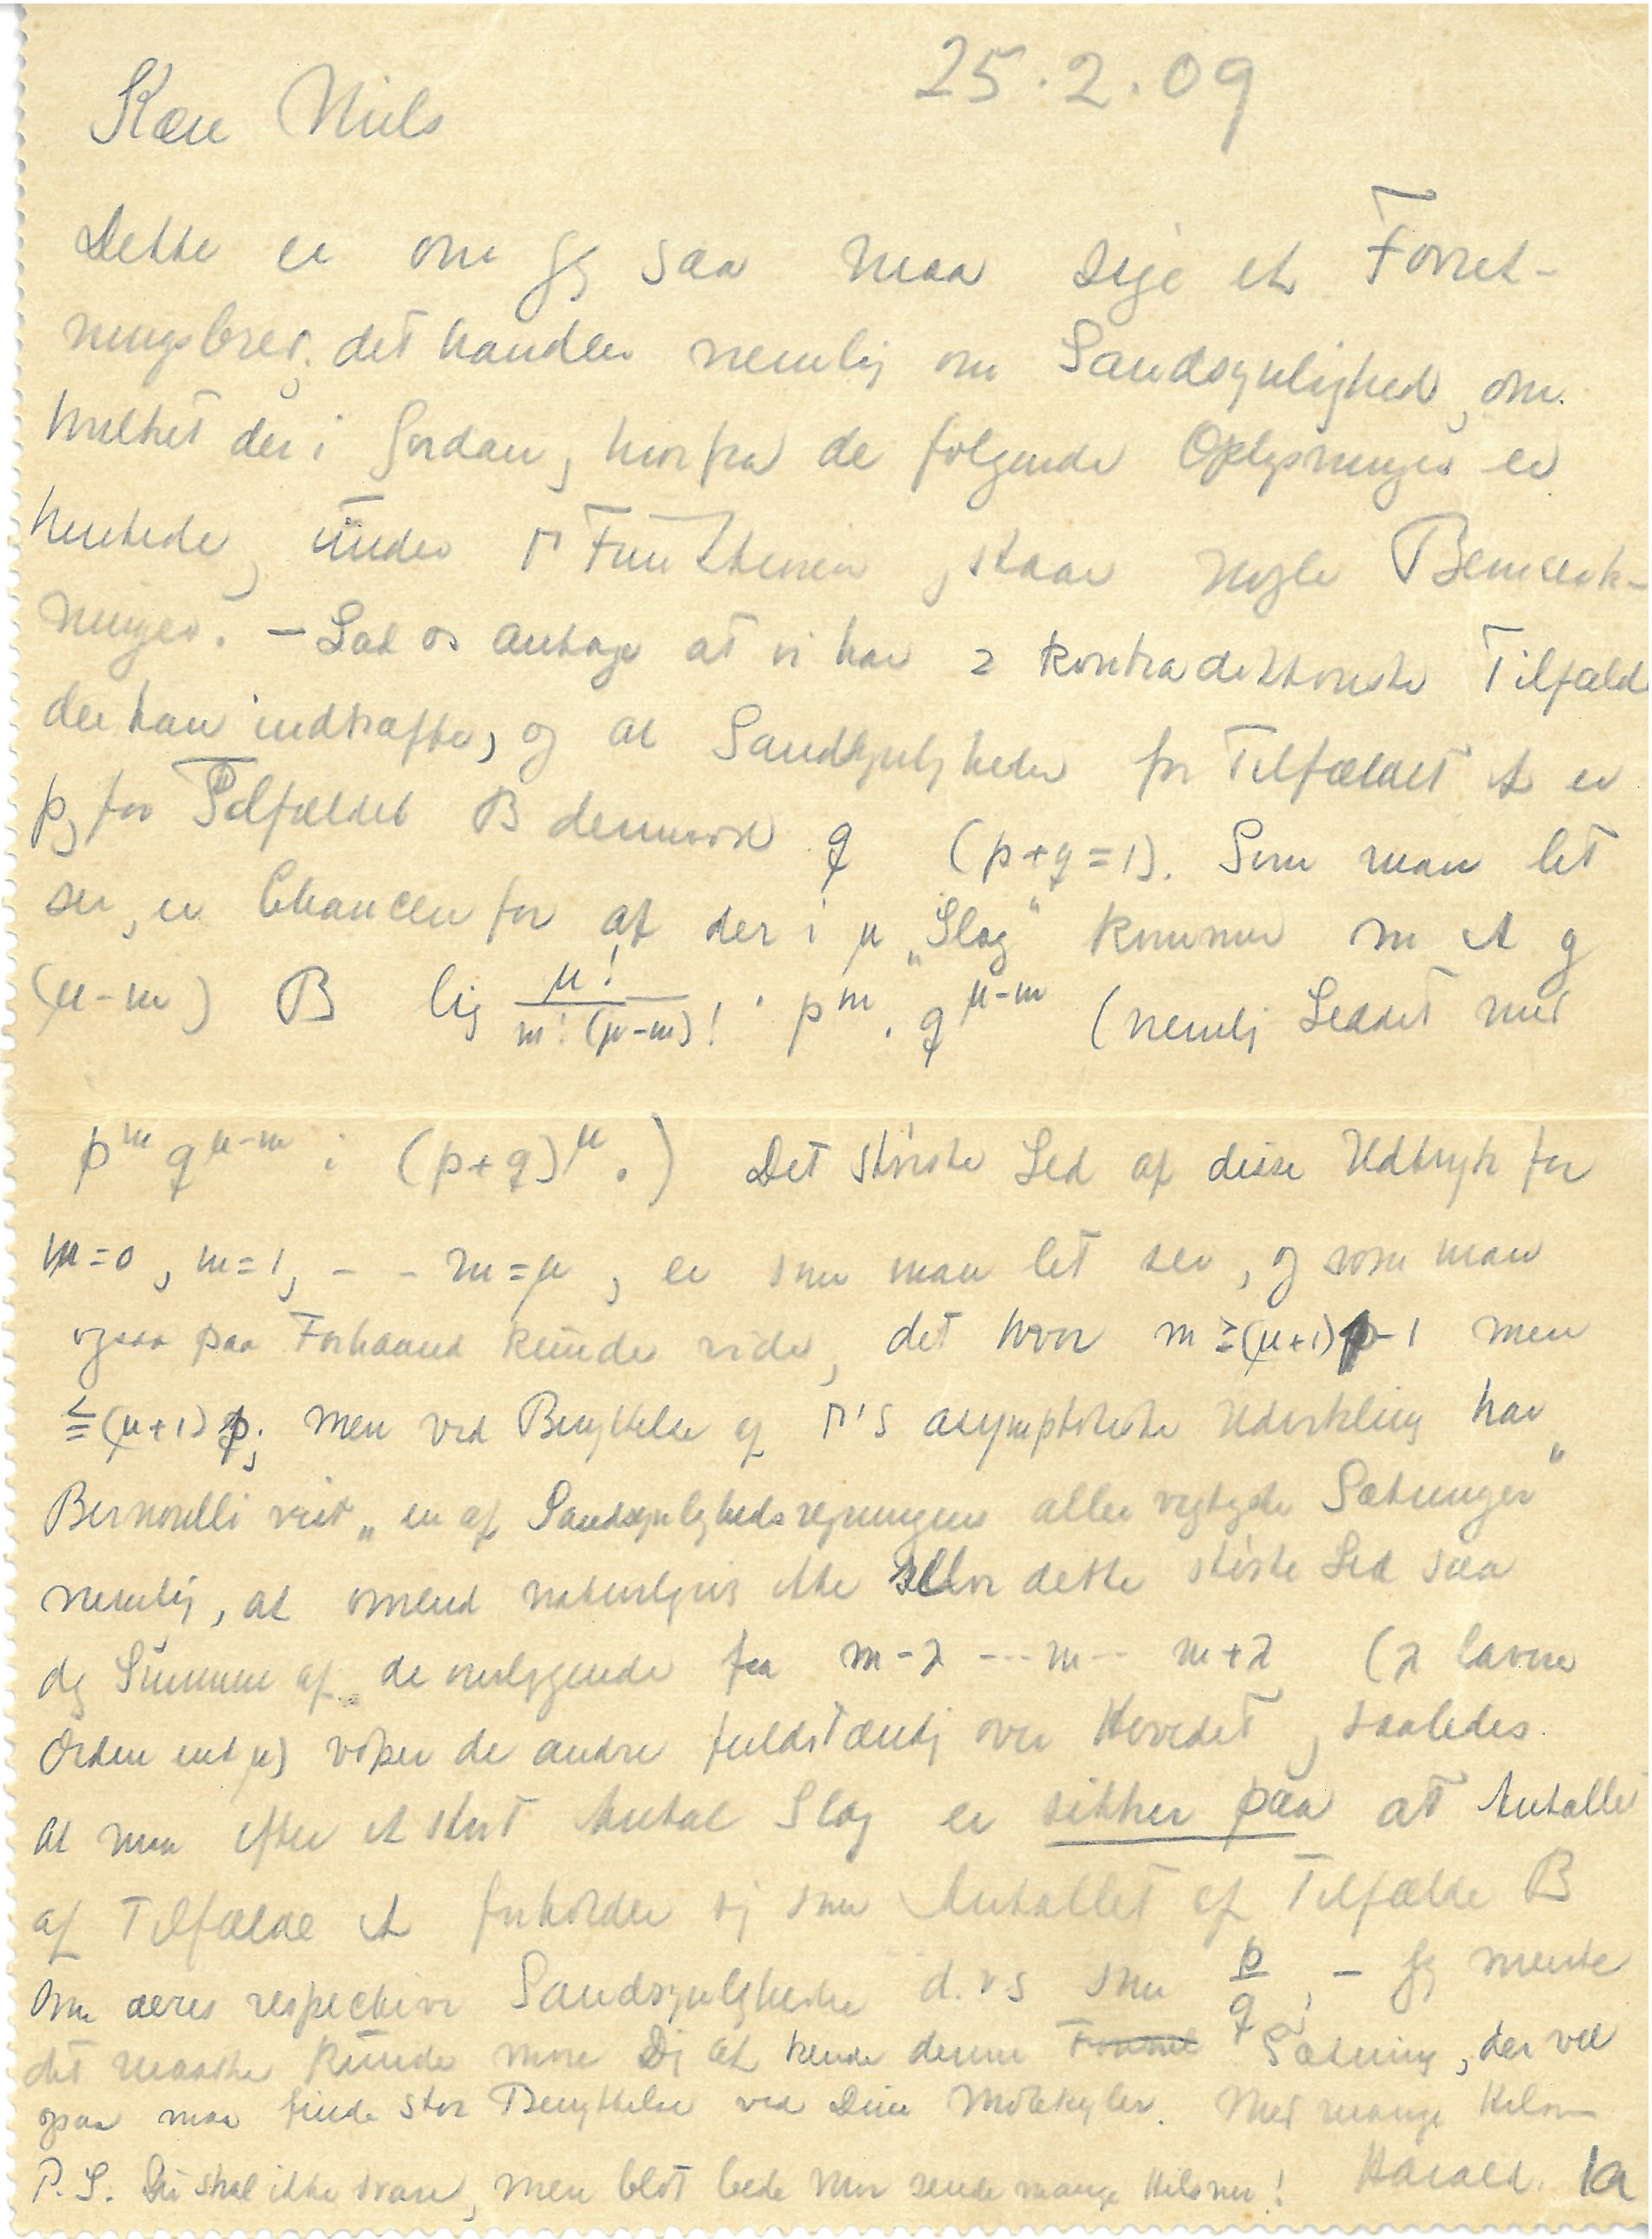 25.2.09
Kære Niels
Dette er om jeg saa maa sige et Forret-
ningsbrev, det handler nemlig om Sandsynlighed, om
hvilket der i Jordan, hvorfra de følgende Oplysninger er
hentede, under Γ Funktionen, staar nogle Bemærk-
ninger. – Lad os antage at vi har 2 kontradiktoriske Tilfælde
der kan indtræffe, og at Sandsynligheden for Tilfældet A er
p, for Tilfældet B derimod q (p+q=1). Som man let
ser, er Chancen for at der i μ „Slag“ kommer m A og
(μ-m) B lig μ!/m!(μ-m)! · p^m · q^{μ-m} (nemlig Leddet med
p^m q^{μ-m} i (p+q)^μ.) Det største Led af disse Udtryk for
m=0, m=1, - - m=μ, er som man let ser, og som man
ogsaa paa Forhaand kunde vide, det hvor m ≧(μ+1)p-1 men
≦(μ+1)p; men ved Benyttelse af Γ's asymptotiske Udvikling har
Bernoulli vist „en af Sandsynlighedsregningens aller vigtigste Sætninger“
nemlig, at omend naturligvis ikke selve dette største Led saa
dog Summen af de omliggende fra m-λ ---m-- m+λ (λ lavere
Orden end μ) vokser de andre fuldstændig over Hovedet, saaledes
at man efter et stort Antal Slag er sikker paa at Antallet
af Tilfælde A forholder sig som Antallet af Tilfælde B
som deres respektive Sandsynligheder d.v.s som p/q; – Jeg mente
det maaske kunde more Dig at kende denne Formel Sætning, der vel
ogsaa maa finde stor Benyttelse ved Dine Molekyler. Med mange Hilsner
Harald.
P.S. Du skal ikke svare, men blot bede Mor sende mange Hilsner!